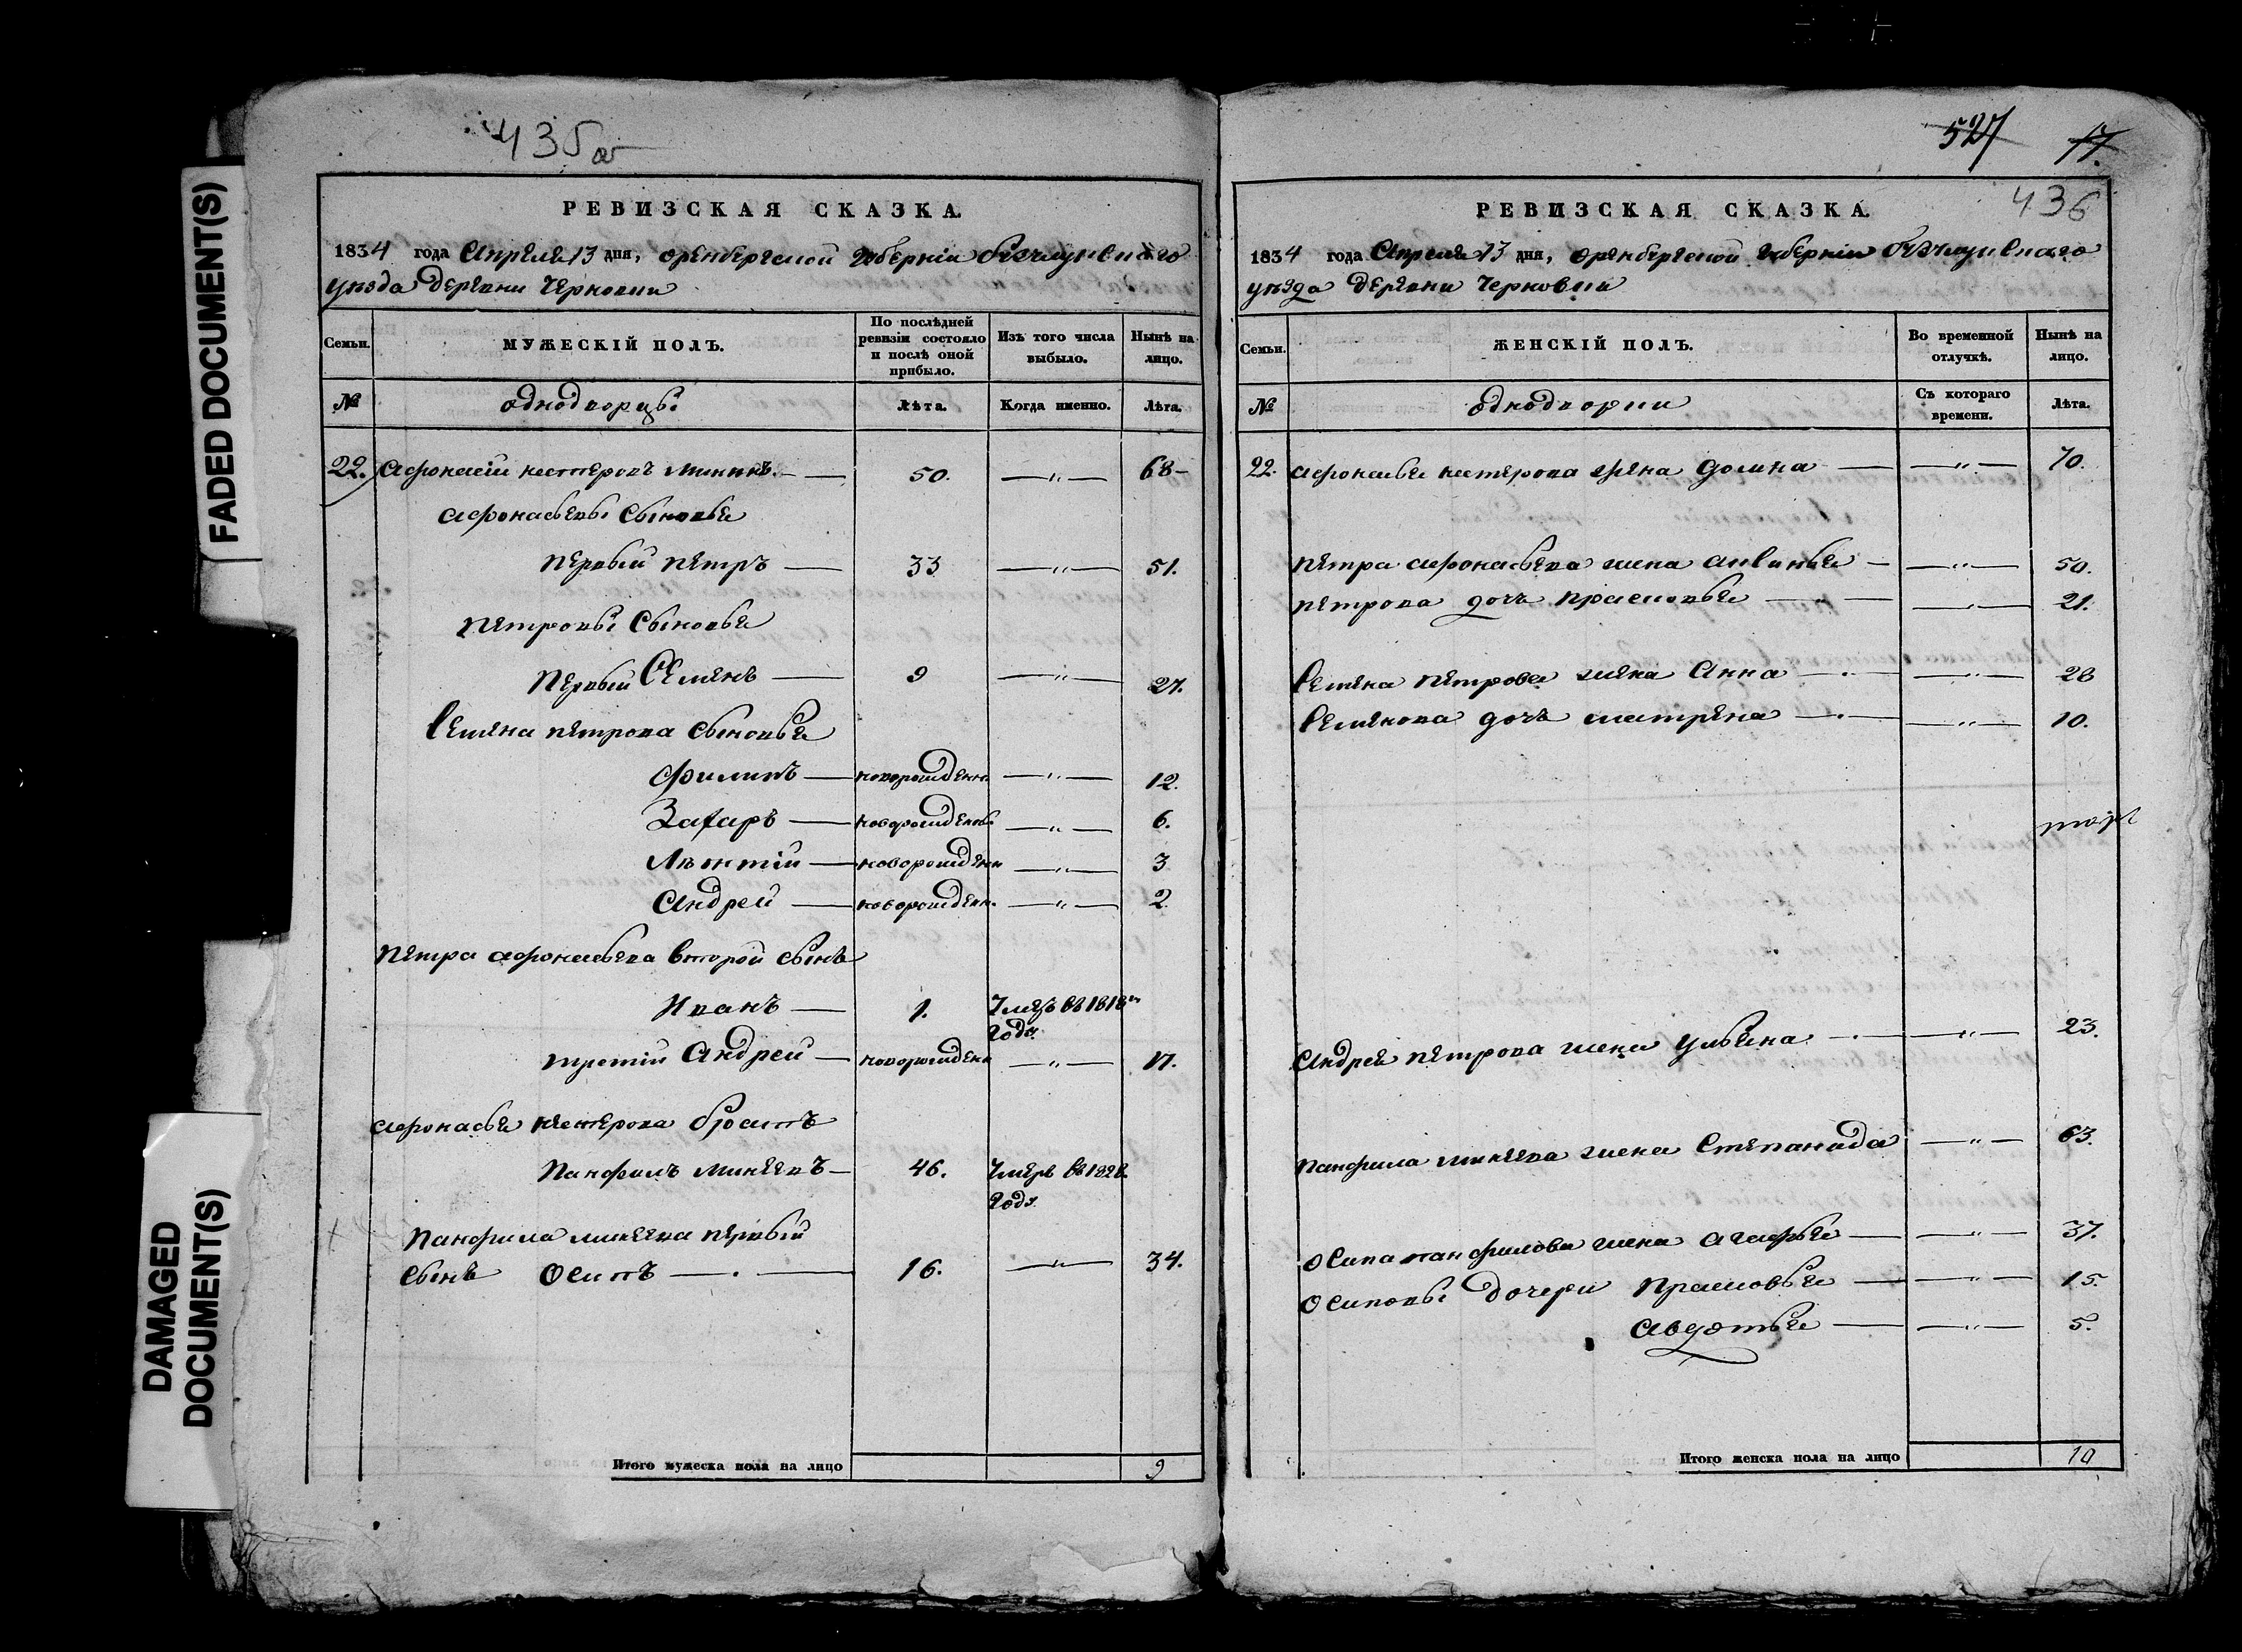 435 об
РЕВИЗСКАЯ СКАЗКА.
1834 года Апреля 13 дня, оренбергской губерніи бузулукскаго
уезда деревни Черновки
Семьи. МУЖЕСКІЙ ПОЛЪ. По послѣдней ревизіи состояло и послѣ оной прибыло. Изъ того числа выбыло. Нынѣ на лицо.
№ однодворцы Лѣта. Когда именно. Лѣта.
22. Афонасій нестеровъ Мининъ. — 50. —"— 68
Афонасьевы Сыновья
Первый Петръ — 33 —"— 51.
Петровы Сыновья
Первый Семенъ — 9 —"— 27.
Семена петрова Сыновья
Филипъ — новорожденъ —"— 12.
Захаръ — новорожденъ —"— 6.
Лѣонтій — новорожденн —"— 3
Андрей — новорожденн. —"— 2.
Петра афонасьева второй Сынъ
Иванъ — 1. Умеръ въ 1818м
Года
третій Андрей — новорожденн —"— 17.
Афонасья нестерова братъ
Панфилъ минеевъ — 46. Умеръ въ 1828.
Года
Панфила минеева первый
Сынъ Осипъ — 16. —"— 34.
Итого мужеска пола на лицо 9
527 17.
436
РЕВИЗСКАЯ СКАЗКА.
1834 года Апреля 13 дня, оренбергской губерніи бузулукскаго
уезда деревни Черновки
Семьи. ЖЕНСКІЙ ПОЛЪ. Во временной отлучкѣ. Нынѣ на лицо.
№ однодворки Съ котораго времени. Лѣта.
22. Афонасья нестерова жена — —"— 70.
Петра афонасьева жена аксинья — —"— 50.
петрова дочь Прасковья — —"— 21.
Семена петрова жена Анна — —"— 28
Семенова дочь матрена — —"— 10.
Андрея петрова жена ульяна — —"— 23.
Панфила минеева жена Степанида —"— 63.
Осипа панфилова жена Агафья — —"— 37.
Осиповы дочери Прасковья — —"— 15.
Авдотья — —"— 5.
Итого женска пола на лицо 10
FADED DOCUMENT(S)
DAMAGED
DOCUMENT(S)